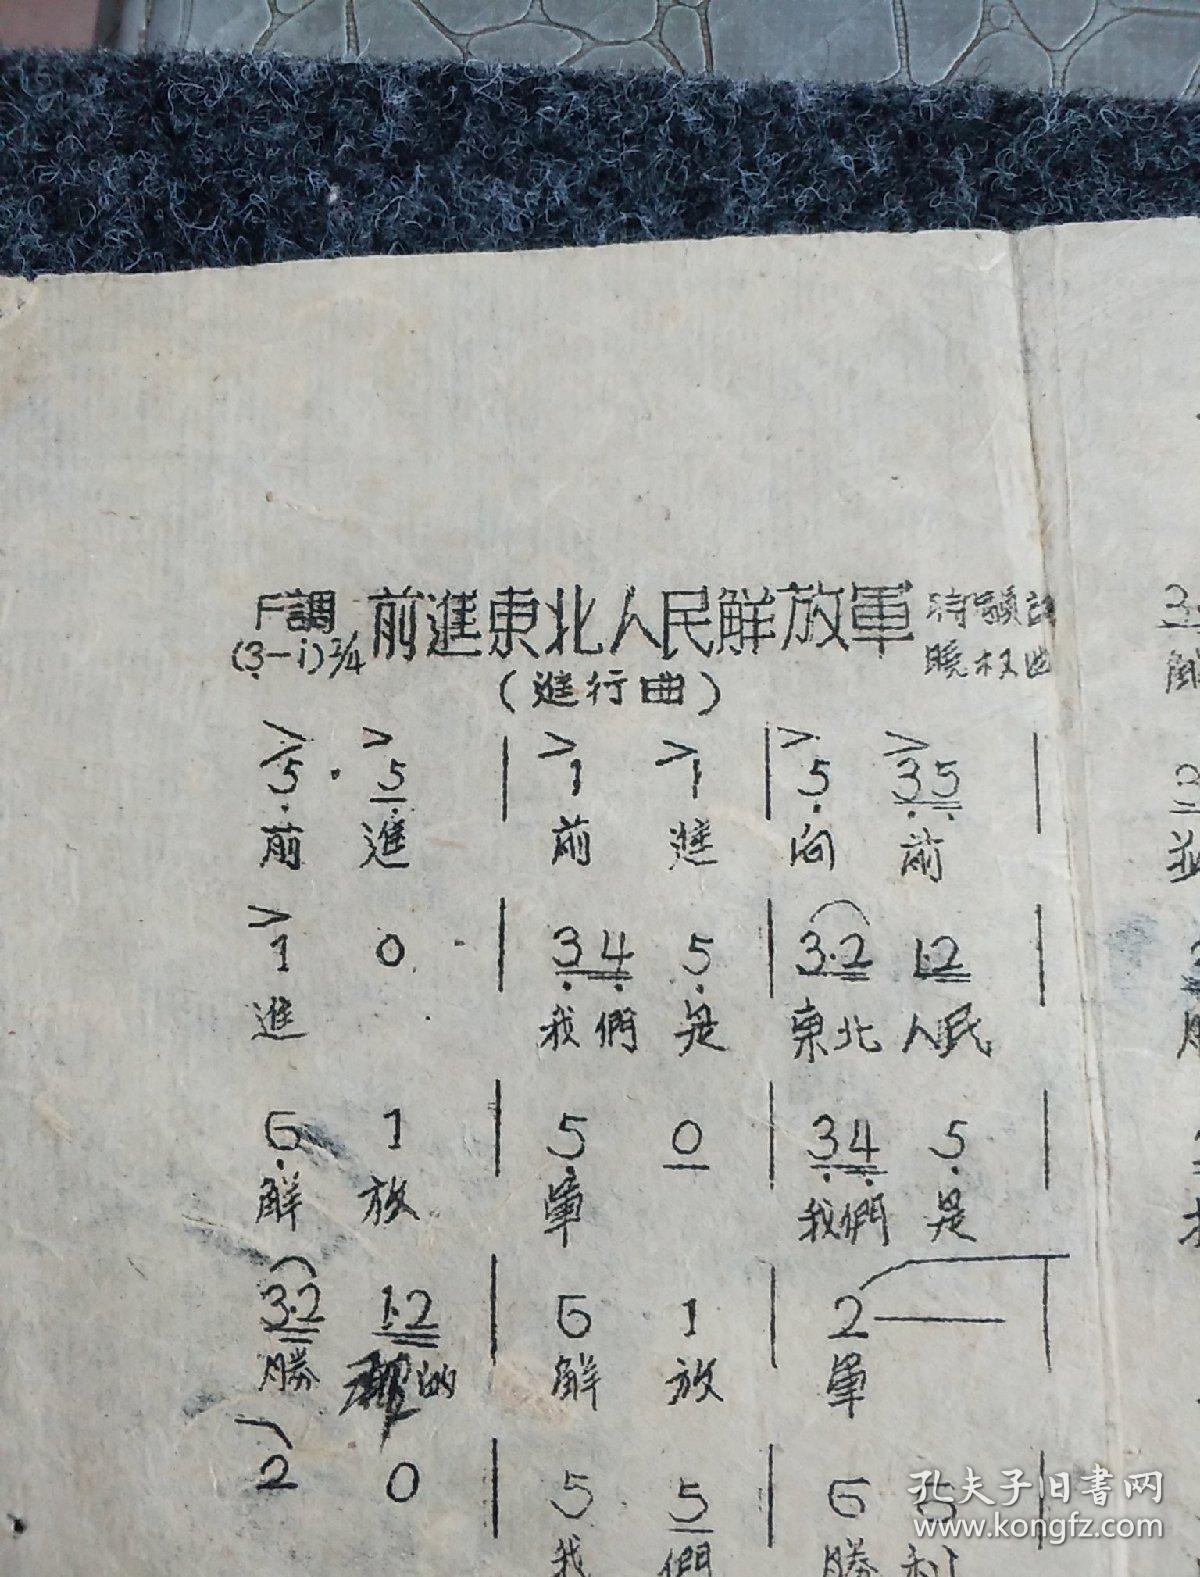 F調 前進東北人民解放軍
(3̣—i) 2/4
曉
(進行曲)
5̣· 5̣ | 1 1 | 5̣ 3̣5̣ |
前 進 前 進 向 前
1 0 | 3̣4̣ 5̣ | 3·2 1·2 |
進 我們 是 東北 人民
6̣ 1 | 5̣ 0 | 3̣4̣ 5̣ |
解 放 軍 我們 是
3·2 1·2 | 6 1 | 2— |
勝 的 解 放 軍
2 0 | 5 5 | 6 6 |
我 們 勝 利
孔夫子旧書网
www.kongfz.com